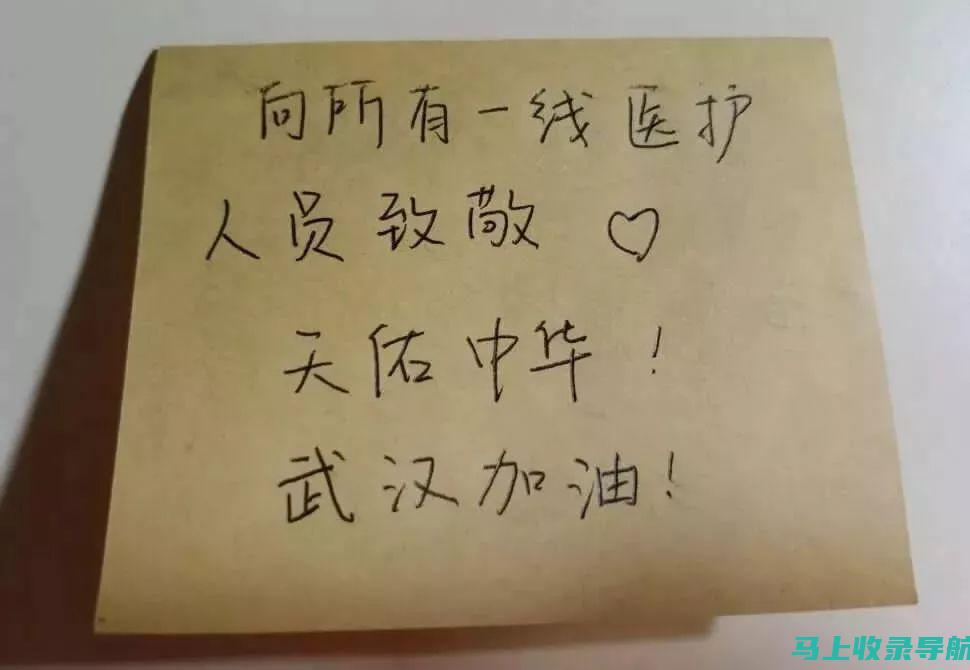 向所有一线医护
人员致敬♡
天佑中华!
武汉加油!
马上收录导航